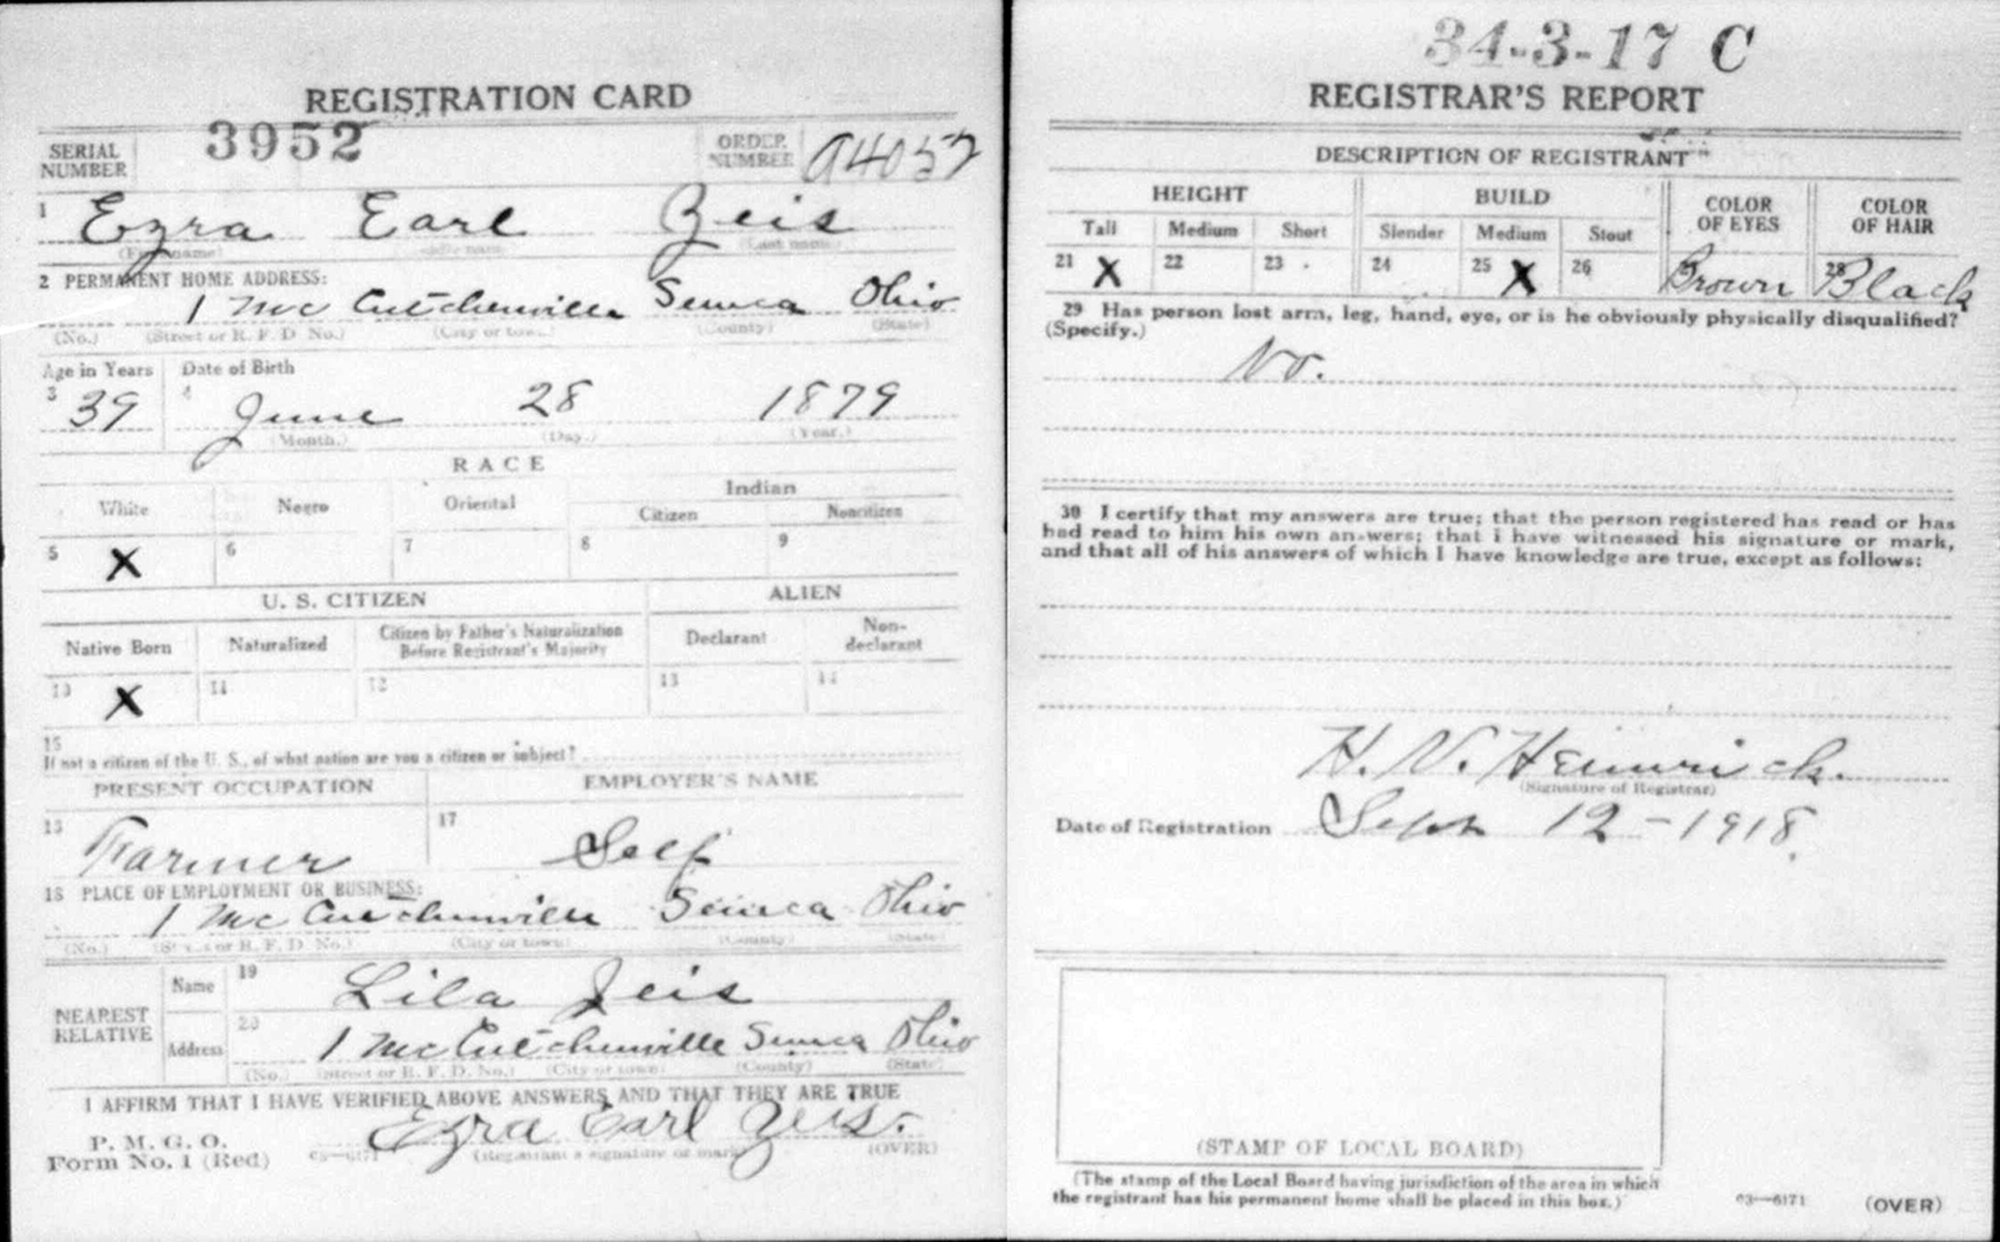 REGISTRATION CARD
SERIAL NUMBER 3952 ORDER NUMBER A4057
1 Ezra Earl Zeis
(First name) (Middle name) (Last name)
2 PERMANENT HOME ADDRESS:
1 McCutchenville Seneca Ohio
(No.) (Street or R. F. D. No.) (City or town) (County) (State)
Age in Years Date of Birth
3 39 4 June 28 1879
(Month.) (Day.) (Year.)
RACE
White Negro Oriental Indian
Citizen Noncitizen
5 X 6 7 8 9
U. S. CITIZEN ALIEN
Native Born Naturalized Citizen by Father's Naturalization Before Registrant's Majority Declarant Non-declarant
10 X 11 12 13 14
15
If not a citizen of the U. S., of what nation are you a citizen or subject?
PRESENT OCCUPATION EMPLOYER'S NAME
Farmer 17 Self
18 PLACE OF EMPLOYMENT OR BUSINESS:
1 McCutchenville Seneca Ohio
(No.) (Street or R. F. D. No.) (City or town) (County) (State)
NEAREST RELATIVE
Name 19 Lila Zeis
Address 20 1 McCutchenville Seneca Ohio
(No.) (Street or R. F. D. No.) (City or town) (County) (State)
I AFFIRM THAT I HAVE VERIFIED ABOVE ANSWERS AND THAT THEY ARE TRUE
P. M. G. O.
Form No. 1 (Red) 03—6171 Ezra Earl Zeis.
(Registrant's signature or mark) (OVER)
34-3-17 C
REGISTRAR'S REPORT
DESCRIPTION OF REGISTRANT
HEIGHT BUILD COLOR OF EYES COLOR OF HAIR
Tall Medium Short Slender Medium Stout
21 X 22 23 24 25 X 26 Brown 28 Black
29 Has person lost arm, leg, hand, eye, or is he obviously physically disqualified?
(Specify.)
No.
30 I certify that my answers are true; that the person registered has read or has
had read to him his own answers; that I have witnessed his signature or mark,
and that all of his answers of which I have knowledge are true, except as follows:
H. V. Heinrick.
(Signature of Registrar)
Date of Registration Sept 12-1918.
(STAMP OF LOCAL BOARD)
(The stamp of the Local Board having jurisdiction of the area in which
the registrant has his permanent home shall be placed in this box.)
03—6171 (OVER)